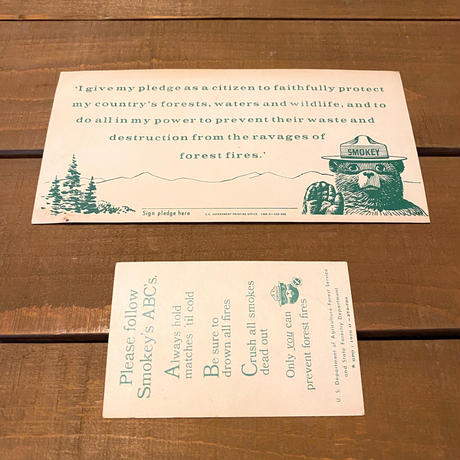 'I give my pledge as a citizen to faithfully protect
my country's forests, waters and wildlife, and to
do all in my power to prevent their waste and
destruction from the ravages of
forest fires.'
SMOKEY
Sign pledge here
U.S. GOVERNMENT PRINTING OFFICE
Please follow
Smokey's ABC's.
Always hold
matches 'til cold
Be sure to
drown all fires
Crush all smokes
dead out
Only you can
prevent forest fires
U. S. Department of Agriculture Forest Service
and State Forestry Department